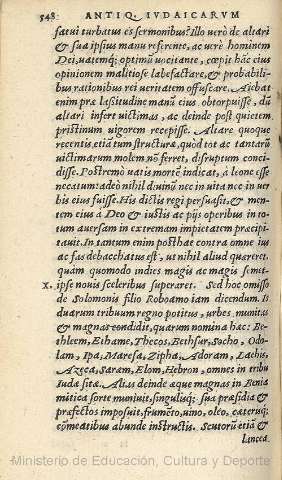 548 ANTIQ. IVDAICARVM
fatui turbatus es sermonibus? Illo verò de altari
& sua ipsius manu referente, ac verè hominem
Dei, uatemq; optimũ uocitante, cœpit hãc eius
opinionem malitiose labefactare, & probabili-
bus rationibus rei veritatem offuscare. Aiebat
enim præ lassitudine manũ eius obtorpuisse, dũ
altari infert uictimas, ac deinde post quietem
pristinum uigorem recepisse. Altare quoque
recentis etiã tum structuræ, quòd tot ac tantarũ
uictimarum molem nõ ferret, disruptum conci-
disse. Postremò uatis mortẽ indicat, a leone esse
necatum: adeò nihil diuinũ nec in uita nec in ver
bis eius fuisse. His dictis regi persuasit, & men-
tem eius a Deo & iustis ac pijs operibus in to-
tum auersam in extremam impietatem præcipi
tauit. In tantum enim posthac contra omne ius
ac fas debacchatus est, ut nihil aliud quæreret,
quàm quomodo indies magis ac magis semet-
X. ipse nouis sceleribus superaret. Sed hoc omisso
de Solomonis filio Roboamo iam dicendum. Is
duarum tribuum regno potitus, urbes munitas
& magnas condidit, quarum nomina hæc: Be-
thleem, Ethame, Thecos, Bethsur, Socho, Odo-
lam, Ipa, Maresa, Zipha, Adoram, Lachis,
Azeca, Saram, Elom, Hebron, omnes in tribu
Iuda sitæ. Alias deinde æque magnas in Benia
mitica sorte muniuit, singulisq; sua præsidia &
præfectos imposuit, frumẽto, uino, oleo, cæterisq;
cõmeatibus abunde instructis. Scutorũ etiã &
lancea.
Ministerio de Educación, Cultura y Deporte